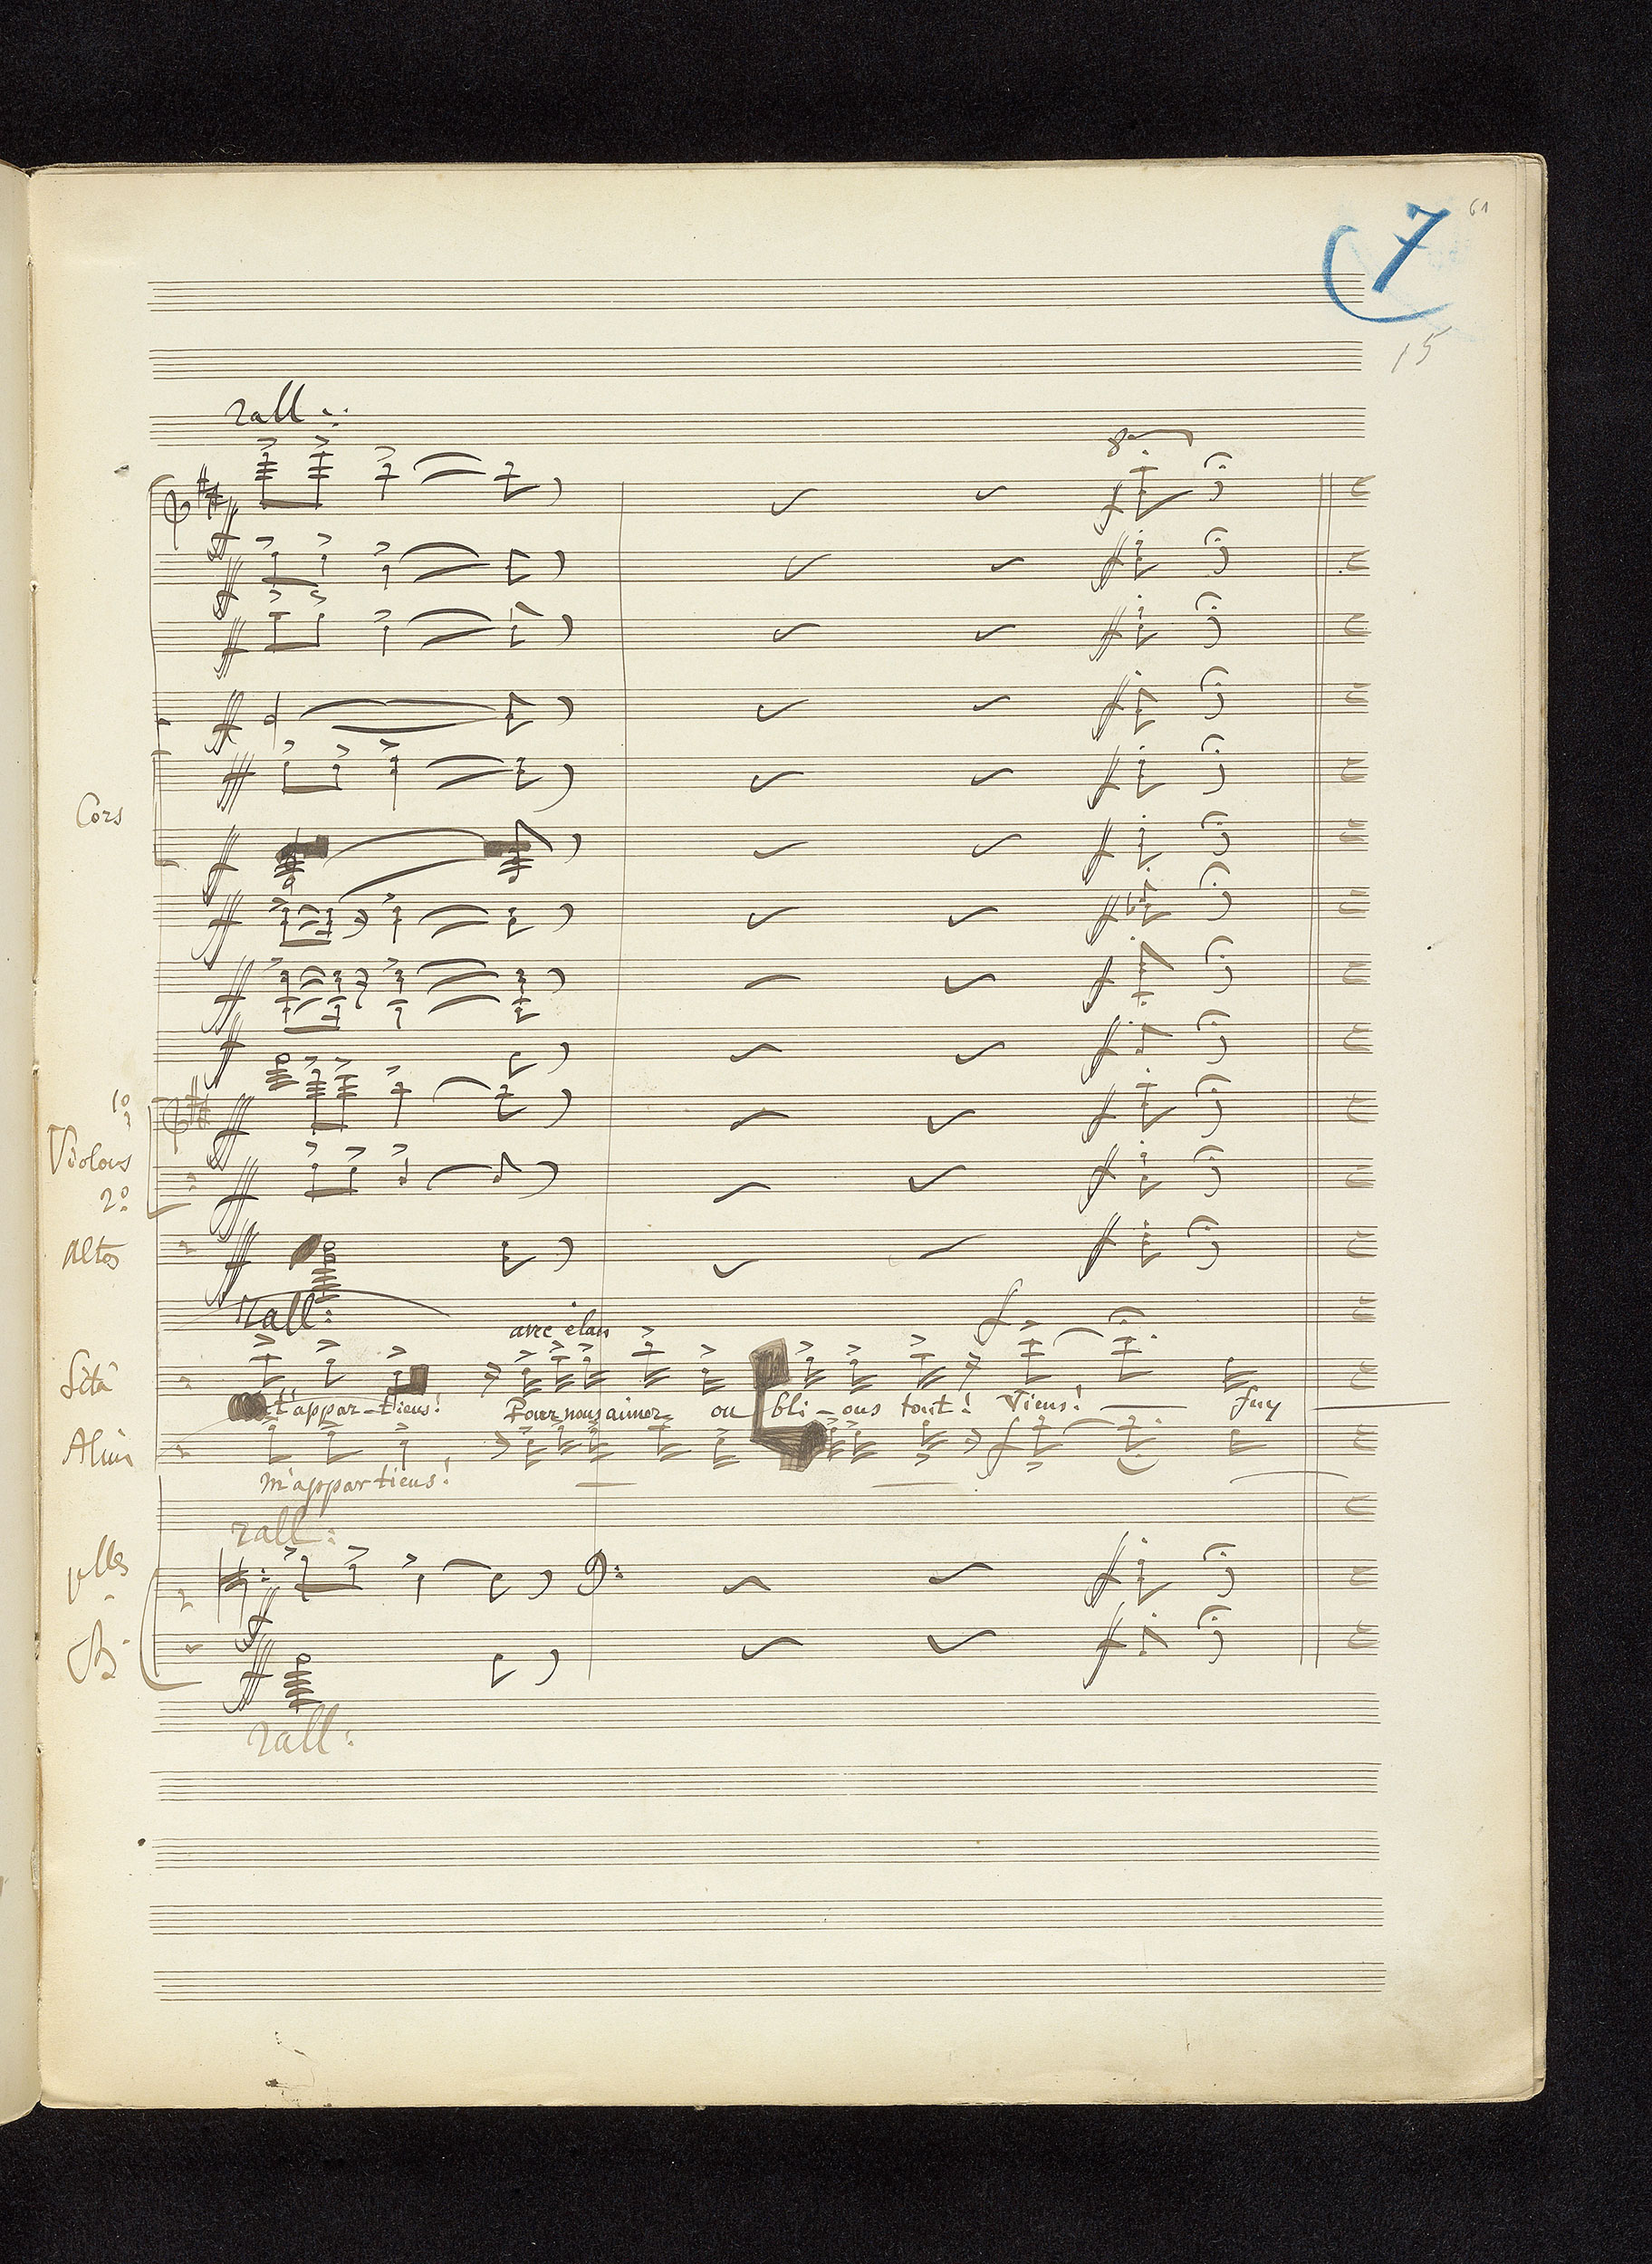 7
61
15
rall:
8
ff
Cors
1o
Violons
2o
Altos
rall:
f
avec élan
Sità
t'appar-tiens! Pour nous aimer ou bli-ons tout! Viens! Fuy
Alim
f
m'appartiens!
rall:
vlles
CB
rall: